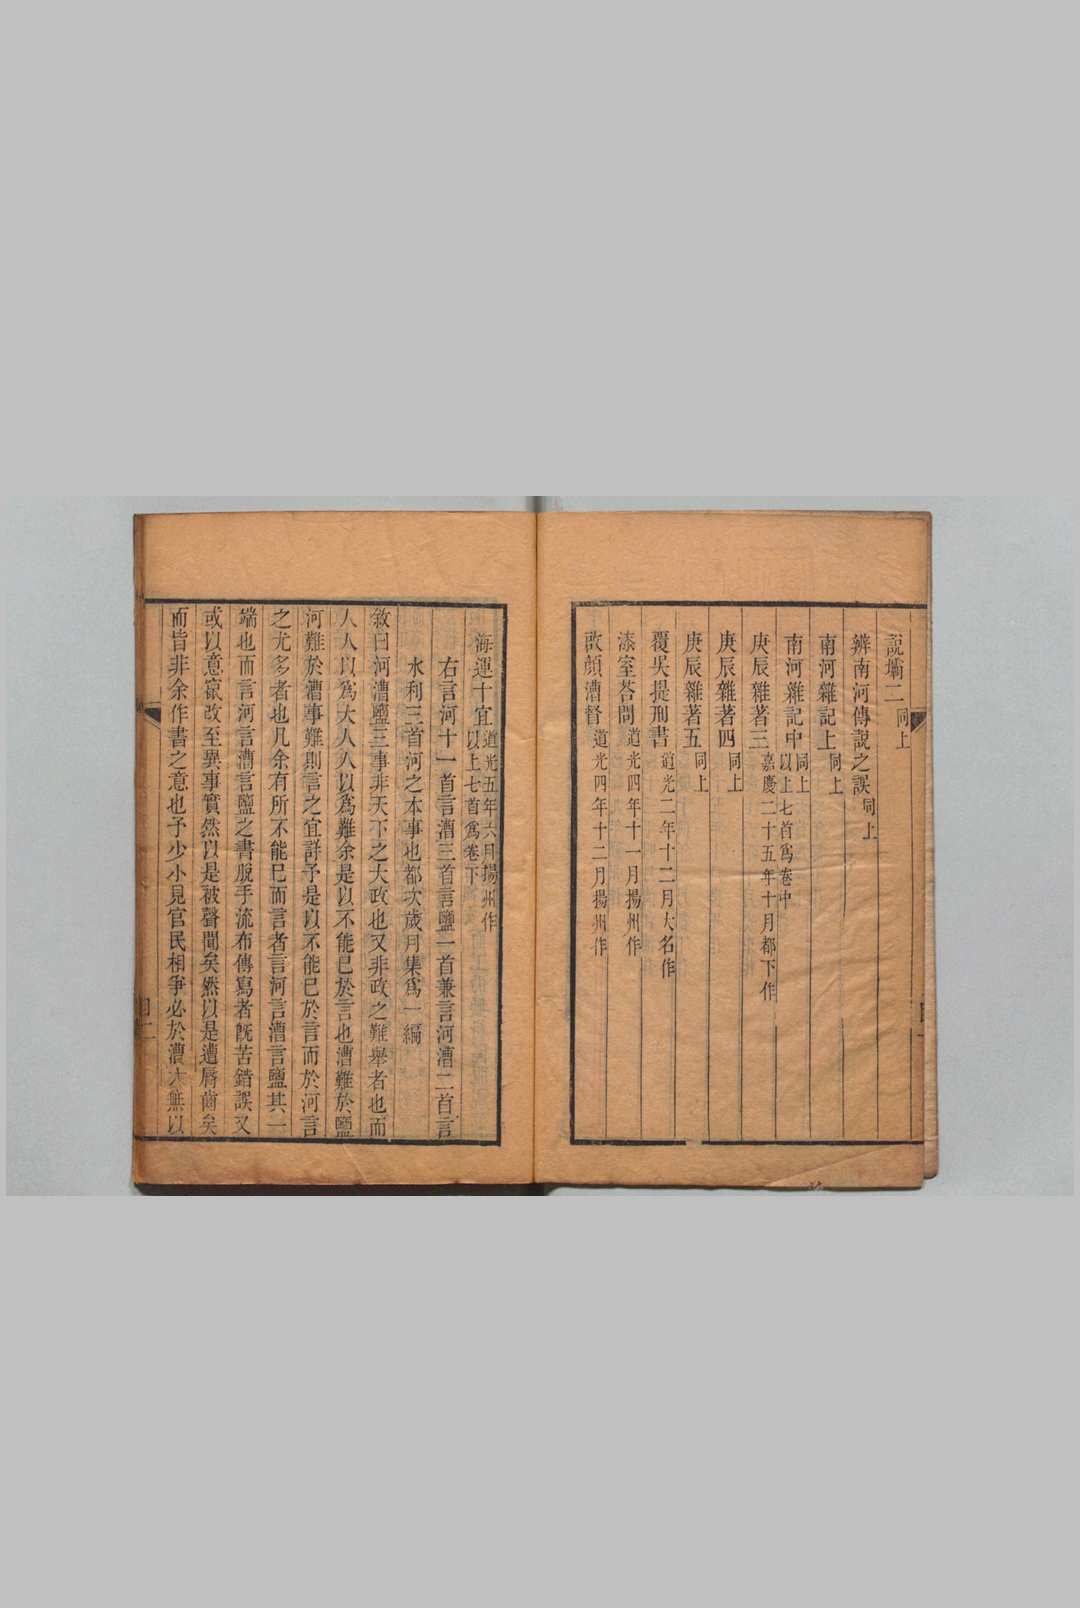 說壩二同上
辨南河傳說之誤同上
南河雜記上同上
南河雜記中同上以上七首爲卷中
庚辰雜著三嘉慶二十五年十月都下作
庚辰雜著四同上
庚辰雜著五同上
覆吳提刑書道光二年十二月大名作
漆室荅問道光四年十一月揚州作
啟顏漕督道光四年十二月揚州作
海運十宜道光五年六月揚州作以上七首爲卷下
右言河十一首言漕三首言鹽一首兼言河漕二首言
水利三首河之本事也都次歲月集爲一編
敘曰河漕鹽三事非天下之大政也又非政之難舉者也而
人人以爲大人人以爲難余是以不能已於言也漕難於鹽
河難於漕事難則言之宜詳予是以不能已於言而於河言
之尤多者也凡余有所不能已而言者言河言漕言鹽其一
端也而言河言漕言鹽之書脫手流布傳寫者旣苦錯誤又
或以意竄改至異事實然以是被聲聞矣然以是遭脣齒矣
而皆非余作書之意也予少小見官民相爭必於漕大無以